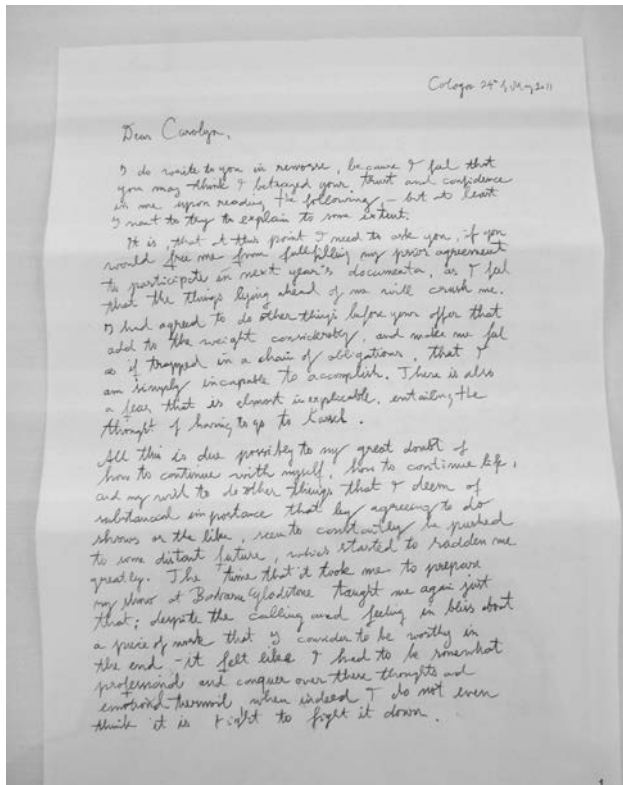 Cologne 24th of May 2011
Dear Carolyn,
I do write to you in remorse, because I feel that
you may think I betrayed your trust and confidence
in me upon reading the following – but at least
I want to try to explain to some extent.
It is, that at this point I need to ask you, if you
would free me from fullfilling my prior agreement
to participate in next year's documenta, as I feel
that the things lying ahead of me will crush me.
I had agreed to do other things before your offer that
add to the weight considerably, and make me feel
as if trapped in a chain of obligations, that I
am simply incapable to accomplish. There is also
a fear that is almost inexplicable, entailing the
thought of having to go to Kassel.
All this is due possibly to my great doubt of
how to continue with myself, how to continue life,
and my wish to do other things that I deem of
substancial importance that by agreeing to do
shows or the like, seem to constantly be pushed
to some distant future, which started to sadden me
greatly. The time that it took me to prepare
my show at Barbara Gladstone taught me again just
that; despite the calling and feeling in bliss about
a piece of work that I consider to be worthy in
the end – it felt like I had to be somewhat
professional and conquer over these thoughts and
emotional turmoil when indeed I do not even
think it is right to fight it down.
1